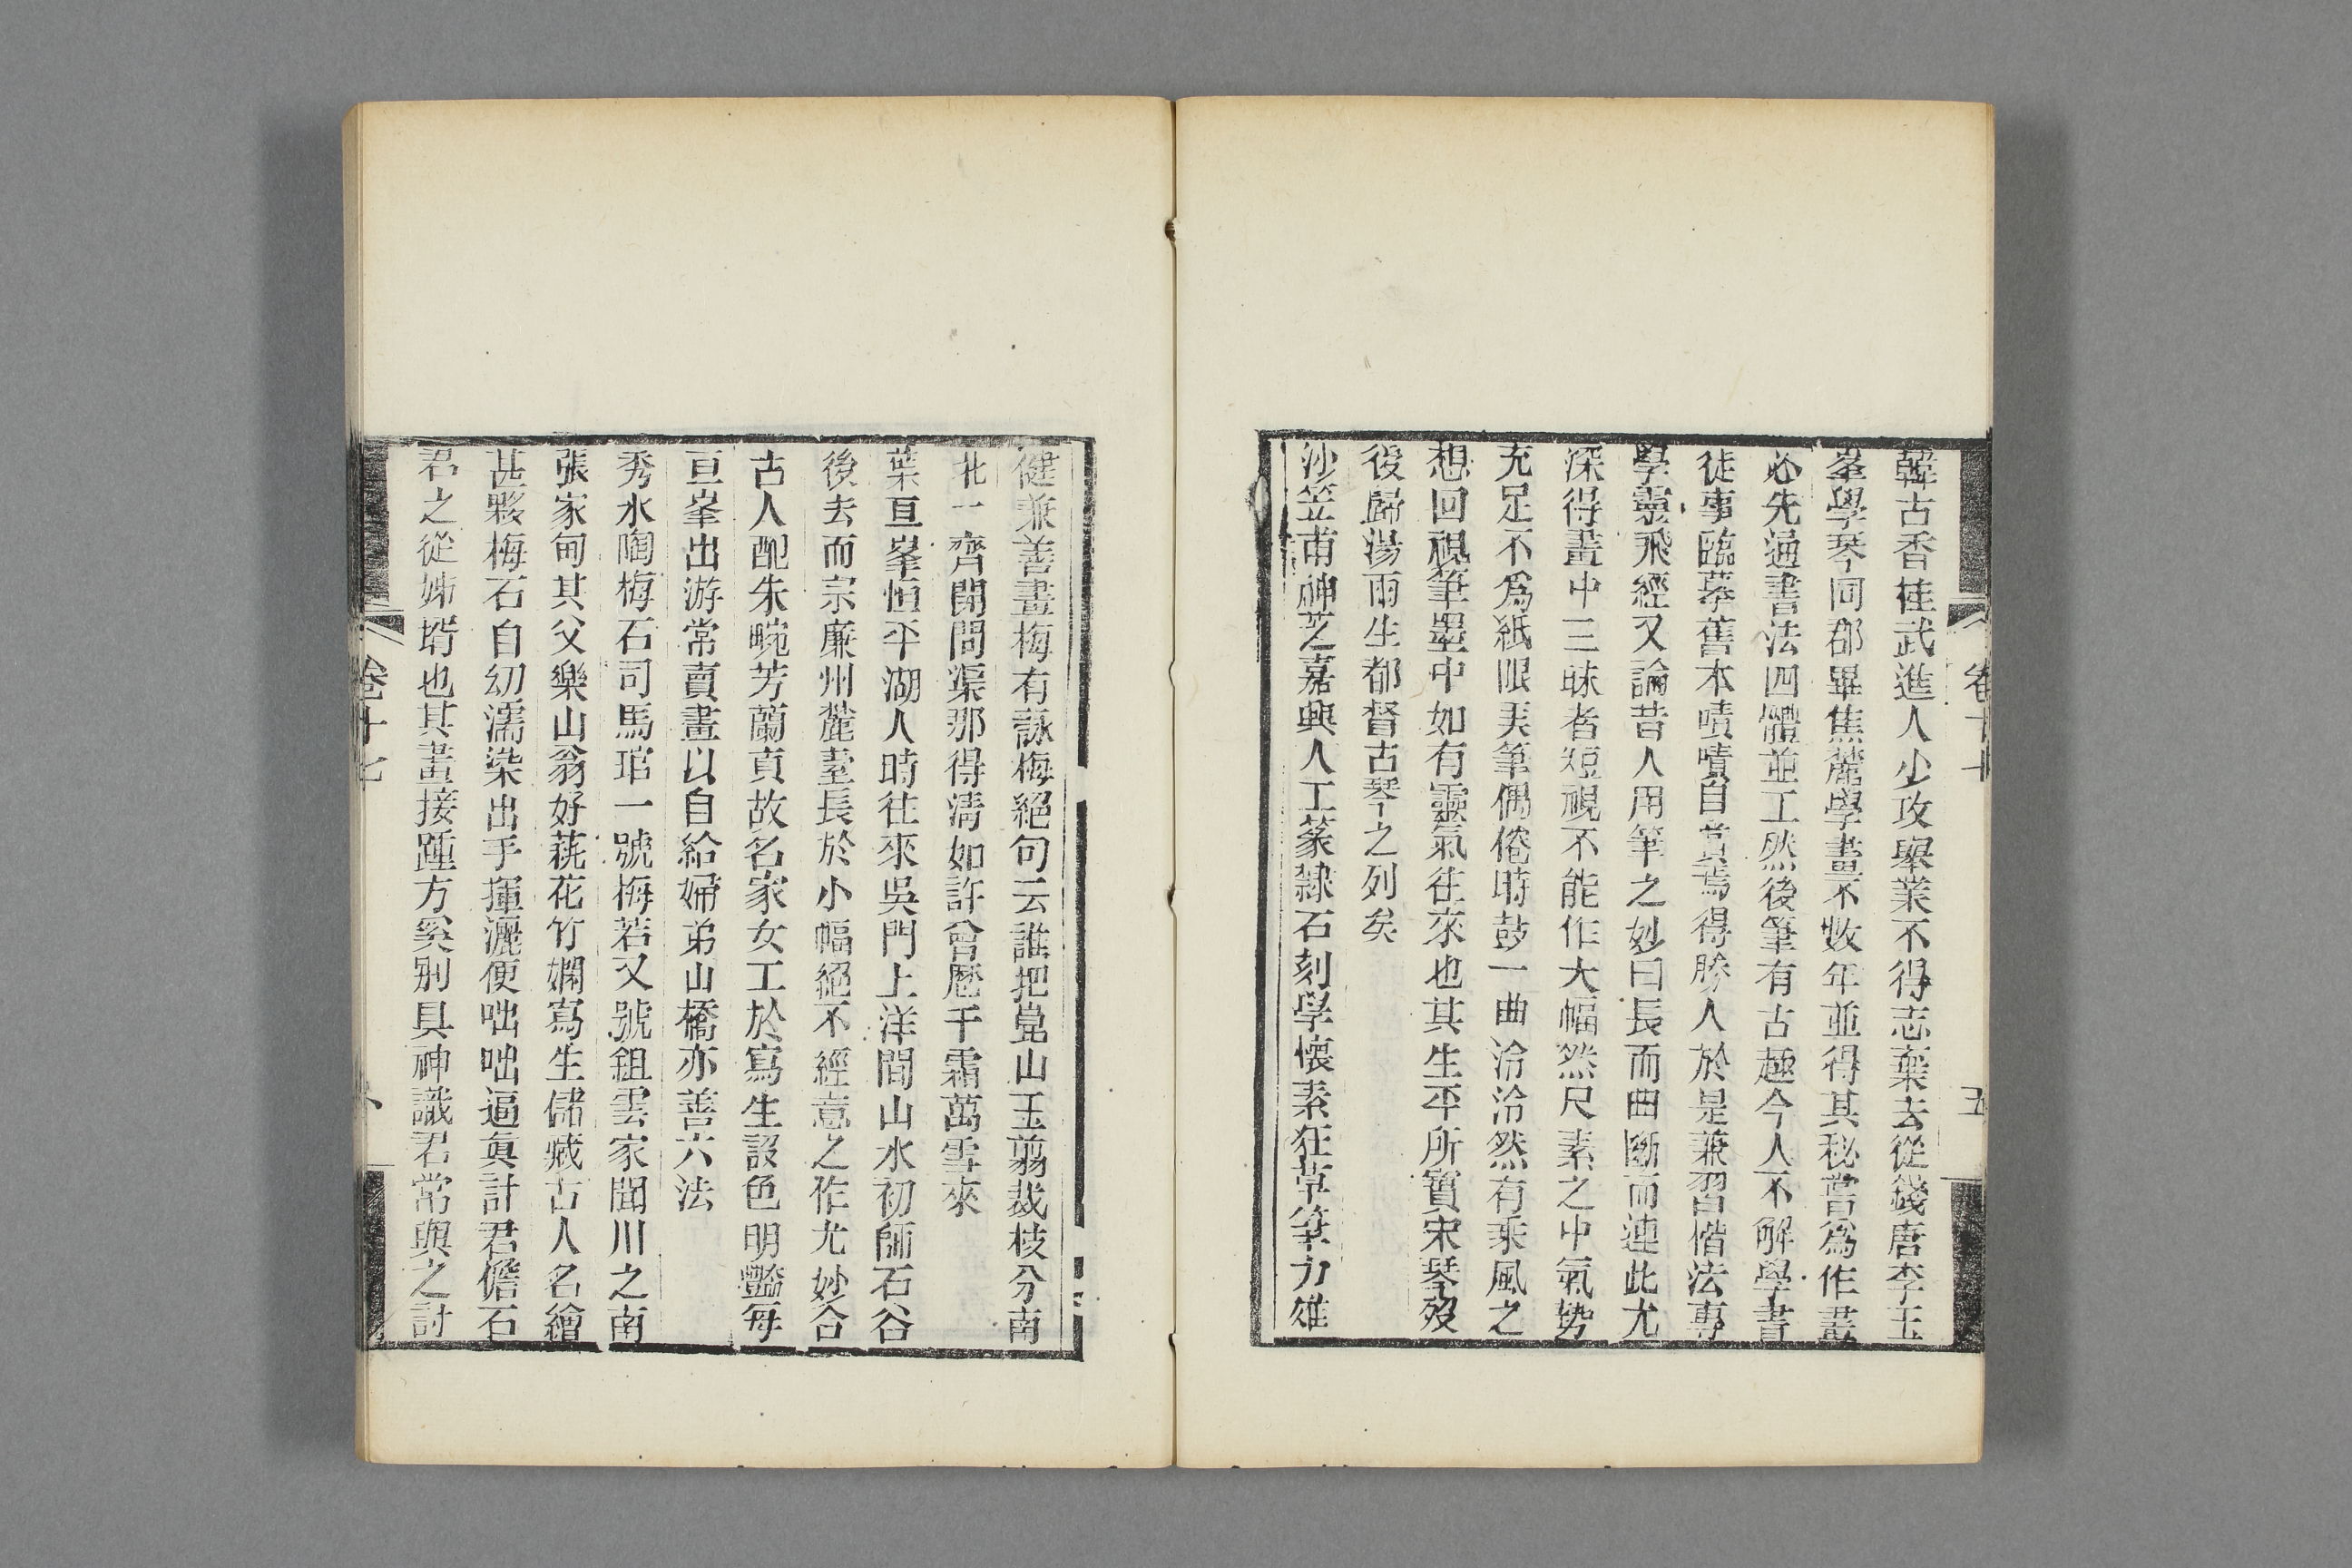 韓古香桂武進人少攻舉業不得志棄去從錢唐李玉
峯學琴同郡畢焦麓學畫不數年並得其秘嘗爲作畫
必先通書法四體並工然後筆有古趣今人不解學書
徒事臨摹舊本嘖嘖自賞焉得勝人於是兼習楷法專
學靈飛經又論昔人用筆之妙曰長而曲斷而連此尤
深得畫中三昧者短視不能作大幅然尺素之中氣勢
充足不爲紙限美筆偶倦時鼓一曲泠泠然有乘風之
想回視筆墨中如有靈氣往來也其生平所寳宋琴歿
後歸湯雨生都督古琴之列矣
沙笠甫神芝嘉興人工篆隸石刻學懷素狂草筆力雄
卷十
五
健兼善畫梅有詠梅絕句云誰把崑山玉翦裁枝分南
北一齊開問渠那得清如許曾歷千霜萬雪來
葉亘峯恒平湖人時往來吳門上洋間山水初師石谷
後去而宗廉州麓臺長於小幅絕不經意之作尤妙合
古人配朱畹芳蘭貞故名家女工於寫生設色明豔每
亘峯出游常賣畫以自給婦弟山橋亦善六法
秀水陶梅石司馬琯一號梅若又號鉏雲家聞川之南
張家甸其父樂山翁好蓺花竹嫻寫生儲藏古人名繪
甚夥梅石自幼濡染出手揮灑便咄咄逼眞計君儋石
君之從姊壻也其畫接踵方奚别具神識君常與之討
卷十七